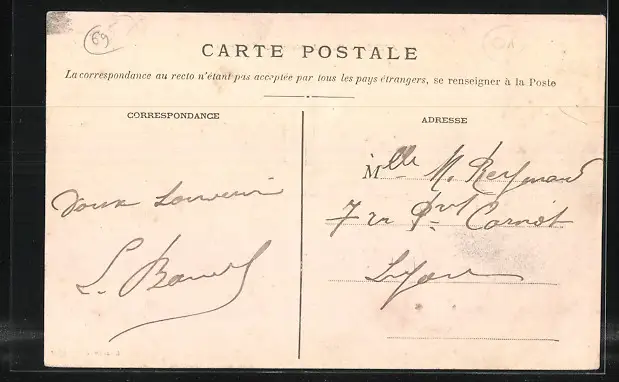 69
CARTE POSTALE
La correspondance au recto n'étant pas acceptée par tous les pays étrangers, se renseigner à la Poste
CORRESPONDANCE
ADRESSE
Doux Souvenir
L.
Mlle M. Reymond
7 Carnot
Lyon